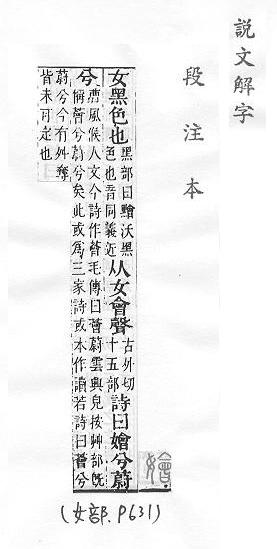 說文解字
段注本
嬒
女黑色也黑部曰䵳沃黑色也音同義近从女會聲古外切十五部詩曰嬒兮蔚
兮曹風候人文今詩作薈毛傳曰薈蔚雲興皃按艸部既偁薈兮蔚兮矣此或爲三家詩或本作讀若詩曰薈兮
蔚兮今有舛奪
皆未可定也
(女部.P631)